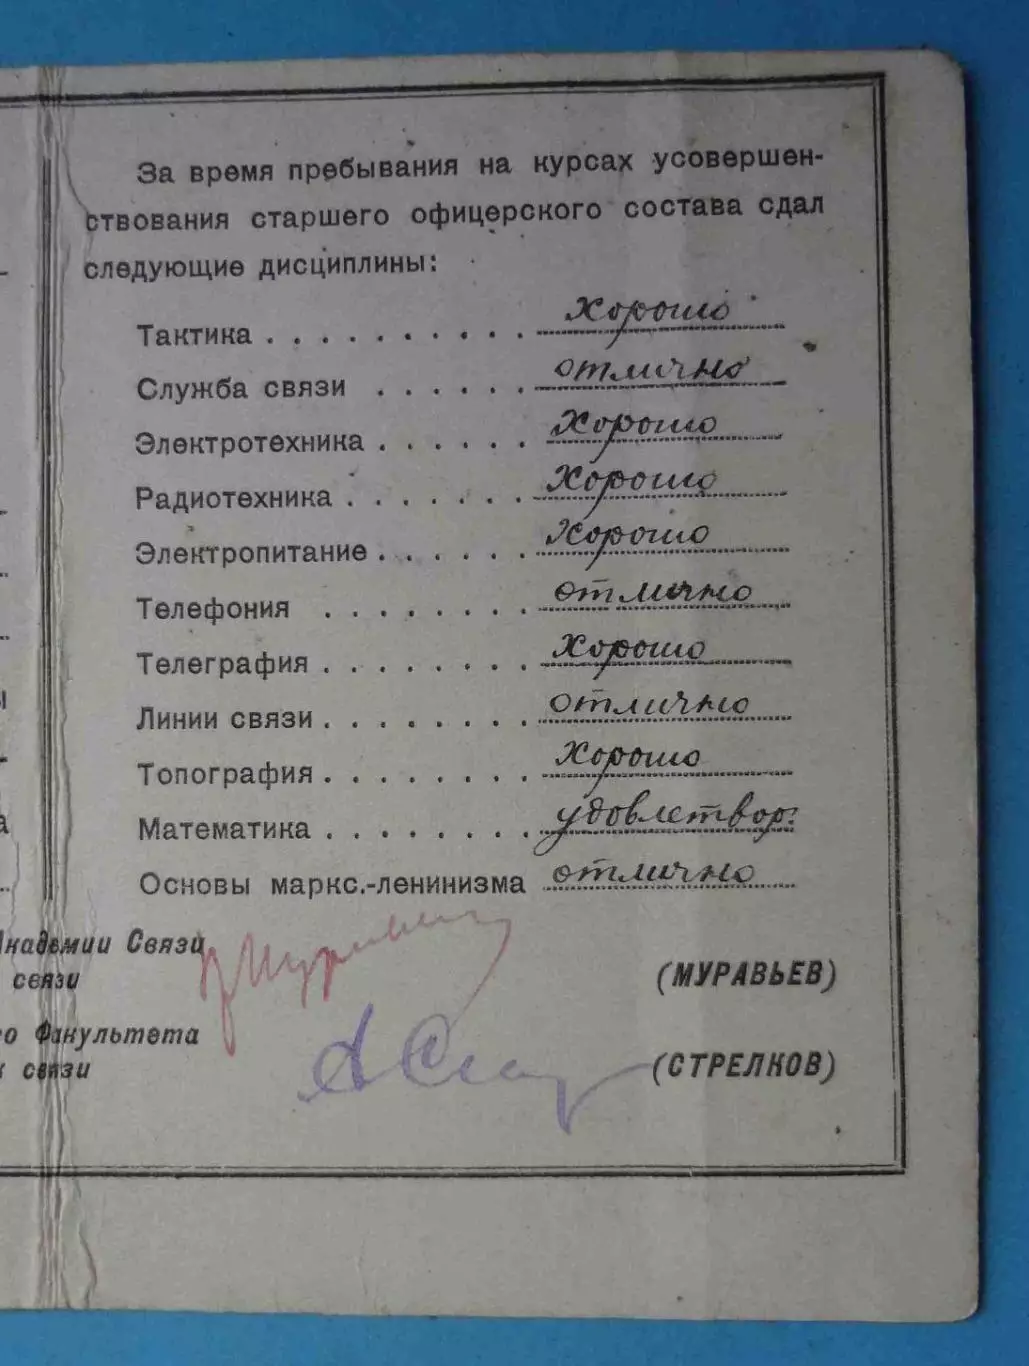 За время пребывания на курсах усовершен-
ствования старшего офицерского состава сдал
следующие дисциплины:
Тактика . . . . . . . . . . хорошо
Служба связи . . . . . . отлично
Электротехника . . . . . . хорошо
Радиотехника . . . . . . . хорошо
Электропитание . . . . . . хорошо
Телефония . . . . . . . . отлично
Телеграфия . . . . . . . . хорошо
Линии связи . . . . . . . . отлично
Топография . . . . . . . . хорошо
Математика . . . . . . . . удовлетвор.
Основы маркс.-ленинизма отлично
Академии Связи
связи (МУРАВЬЕВ)
Факультета
связи (СТРЕЛКОВ)